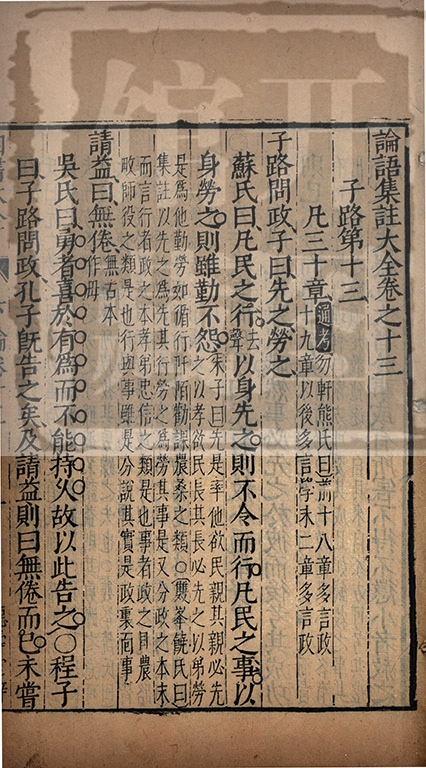 論語集註大全卷之十三
子路第十三
凡三十章
通考
勿軒熊氏曰前十八章多言政
十九章以後多言學末二章多言政
子路問政子曰先之勞之
蘇氏曰凡民之行去聲以身先之則不令而行凡民之事以
身勞之則雖勤不怨
朱子曰先是率他欲民親其親必先
之以孝欲民長其長必先之以弟勞
是爲他勤勞如循行阡陌勸課農桑之類○雙峯饒氏曰
集註以先之爲先其行勞之爲勞其事是又分政之本末
而言行者政之本孝弟忠信之類是也事者政之目農
畋師役之類是也行與事雖是分說其實是政裏面事
請益曰無倦
無古本
作毋
吳氏曰勇者喜於有爲而不能持久故以此告之○程子
曰子路問政孔子旣告之矣及請益則曰無倦而已未嘗